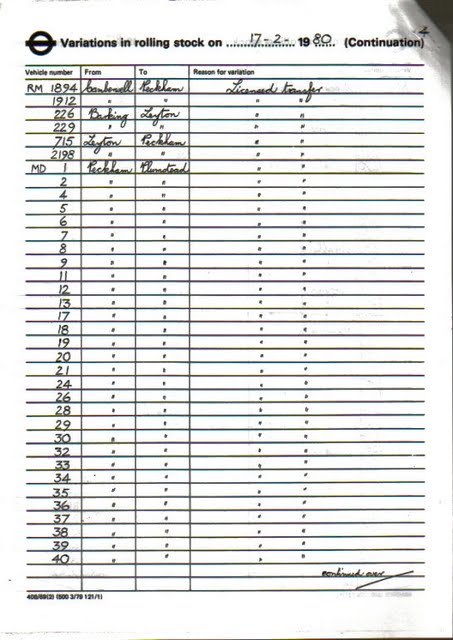 4
Variations in rolling stock on 17-2- 1980 (Continuation)
Vehicle number From To Reason for variation
RM 1894 Camberwell Peckham Licensed transfer
1912 " " " "
226 Barking Leyton " "
229 " " " "
715 Leyton Peckham " "
2198 " " " "
MD 1 Peckham Plumstead " "
2 " " " "
4 " " " "
5 " " " "
6 " " " "
7 " " " "
8 " " " "
9 " " " "
11 " " " "
12 " " " "
13 " " " "
17 " " " "
18 " " " "
19 " " " "
20 " " " "
21 " " " "
24 " " " "
26 " " " "
28 " " " "
29 " " " "
30 " " " "
32 " " " "
33 " " " "
34 " " " "
35 " " " "
36 " " " "
37 " " " "
38 " " " "
39 " " " "
40 " " " "
continued over
408/69(2) (500 3/79 121/1)